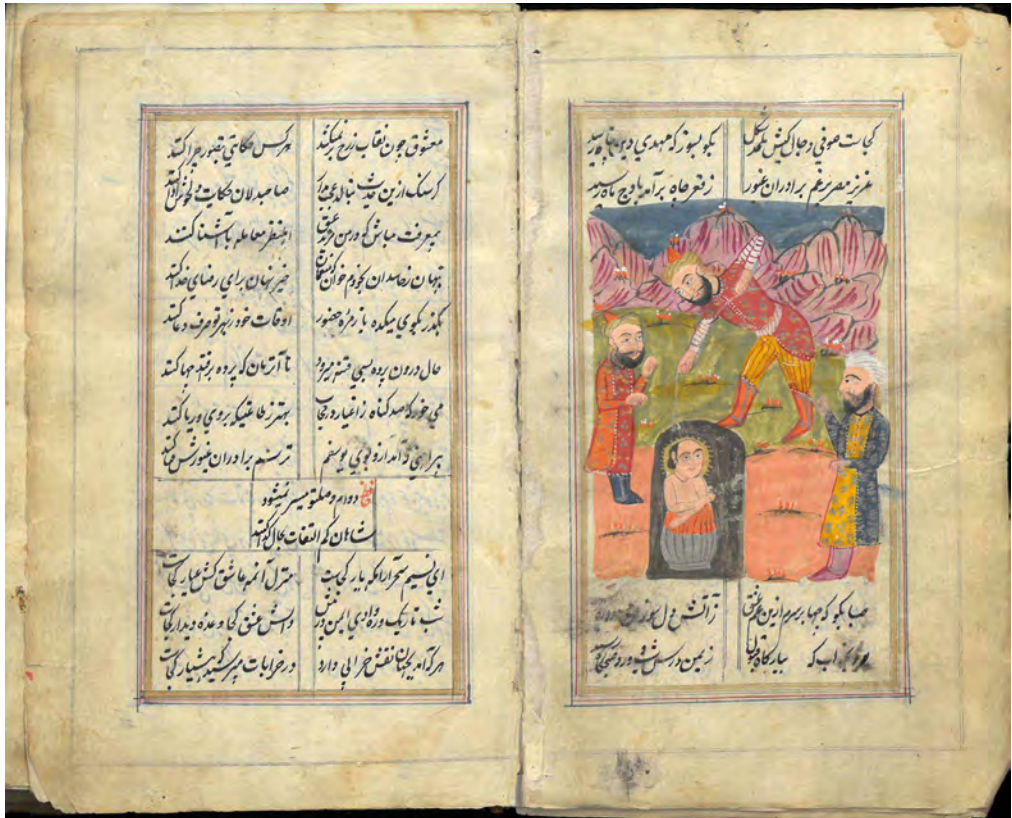 کجاست صوفی دجال کیش ملحد شکل بکو بسوز که مهدی دین پناه رسید
عزیز مصر برغم برادران غیور ز قعر چاه برآمد باوج ماه رسید
صبا بکو که چها بر سرم ازین غم عشق ز آتش دل سوزان و دود
که ببارکاه قبول زیمن درس شب و ورد رسید
معشوق چون نقاب ز رخ برنمیکشد هر کس حکایتی بتصور چرا کنند
کر سنک ازین حدیث بنالد عجب مدار صاحبدلان حکایت دل خوش ادا کنند
بیمعرفت مباش که در من یزید عشق اهل نظر معامله با آشنا کنند
پنهان ز حاسدان بخودم خوان که منعمان خیر نهان برای رضای خدا کنند
بکذر بکوی میکده تا زمره حضور اوقات خود ز بهر تو صرف دعا کنند
حال درون پرده بسی فتنه میرود تا آنزمان که پرده برافتد چها کنند
می خور که صد کناه ز اغیار در حجاب بهتر ز طاعتیکه بروی و ریا کنند
پیراهنی که آید ازو بوی یوسفم ترسم برادران غیورش قبا کنند
حافظ دوام وصل میسر نمیشود
شاهان کم التفات بحال کدا کنند
ای نسیم سحر آرامکه یار کجاست منزل آن مه عاشق کش عیار کجاست
شب تاریک و ره وادی ایمن در پیش آتش عشق کجا وعده دیدار کجاست
هر که آمد بجهان نقش خرابی دارد در خرابات مپرسید که هشیار کجاست